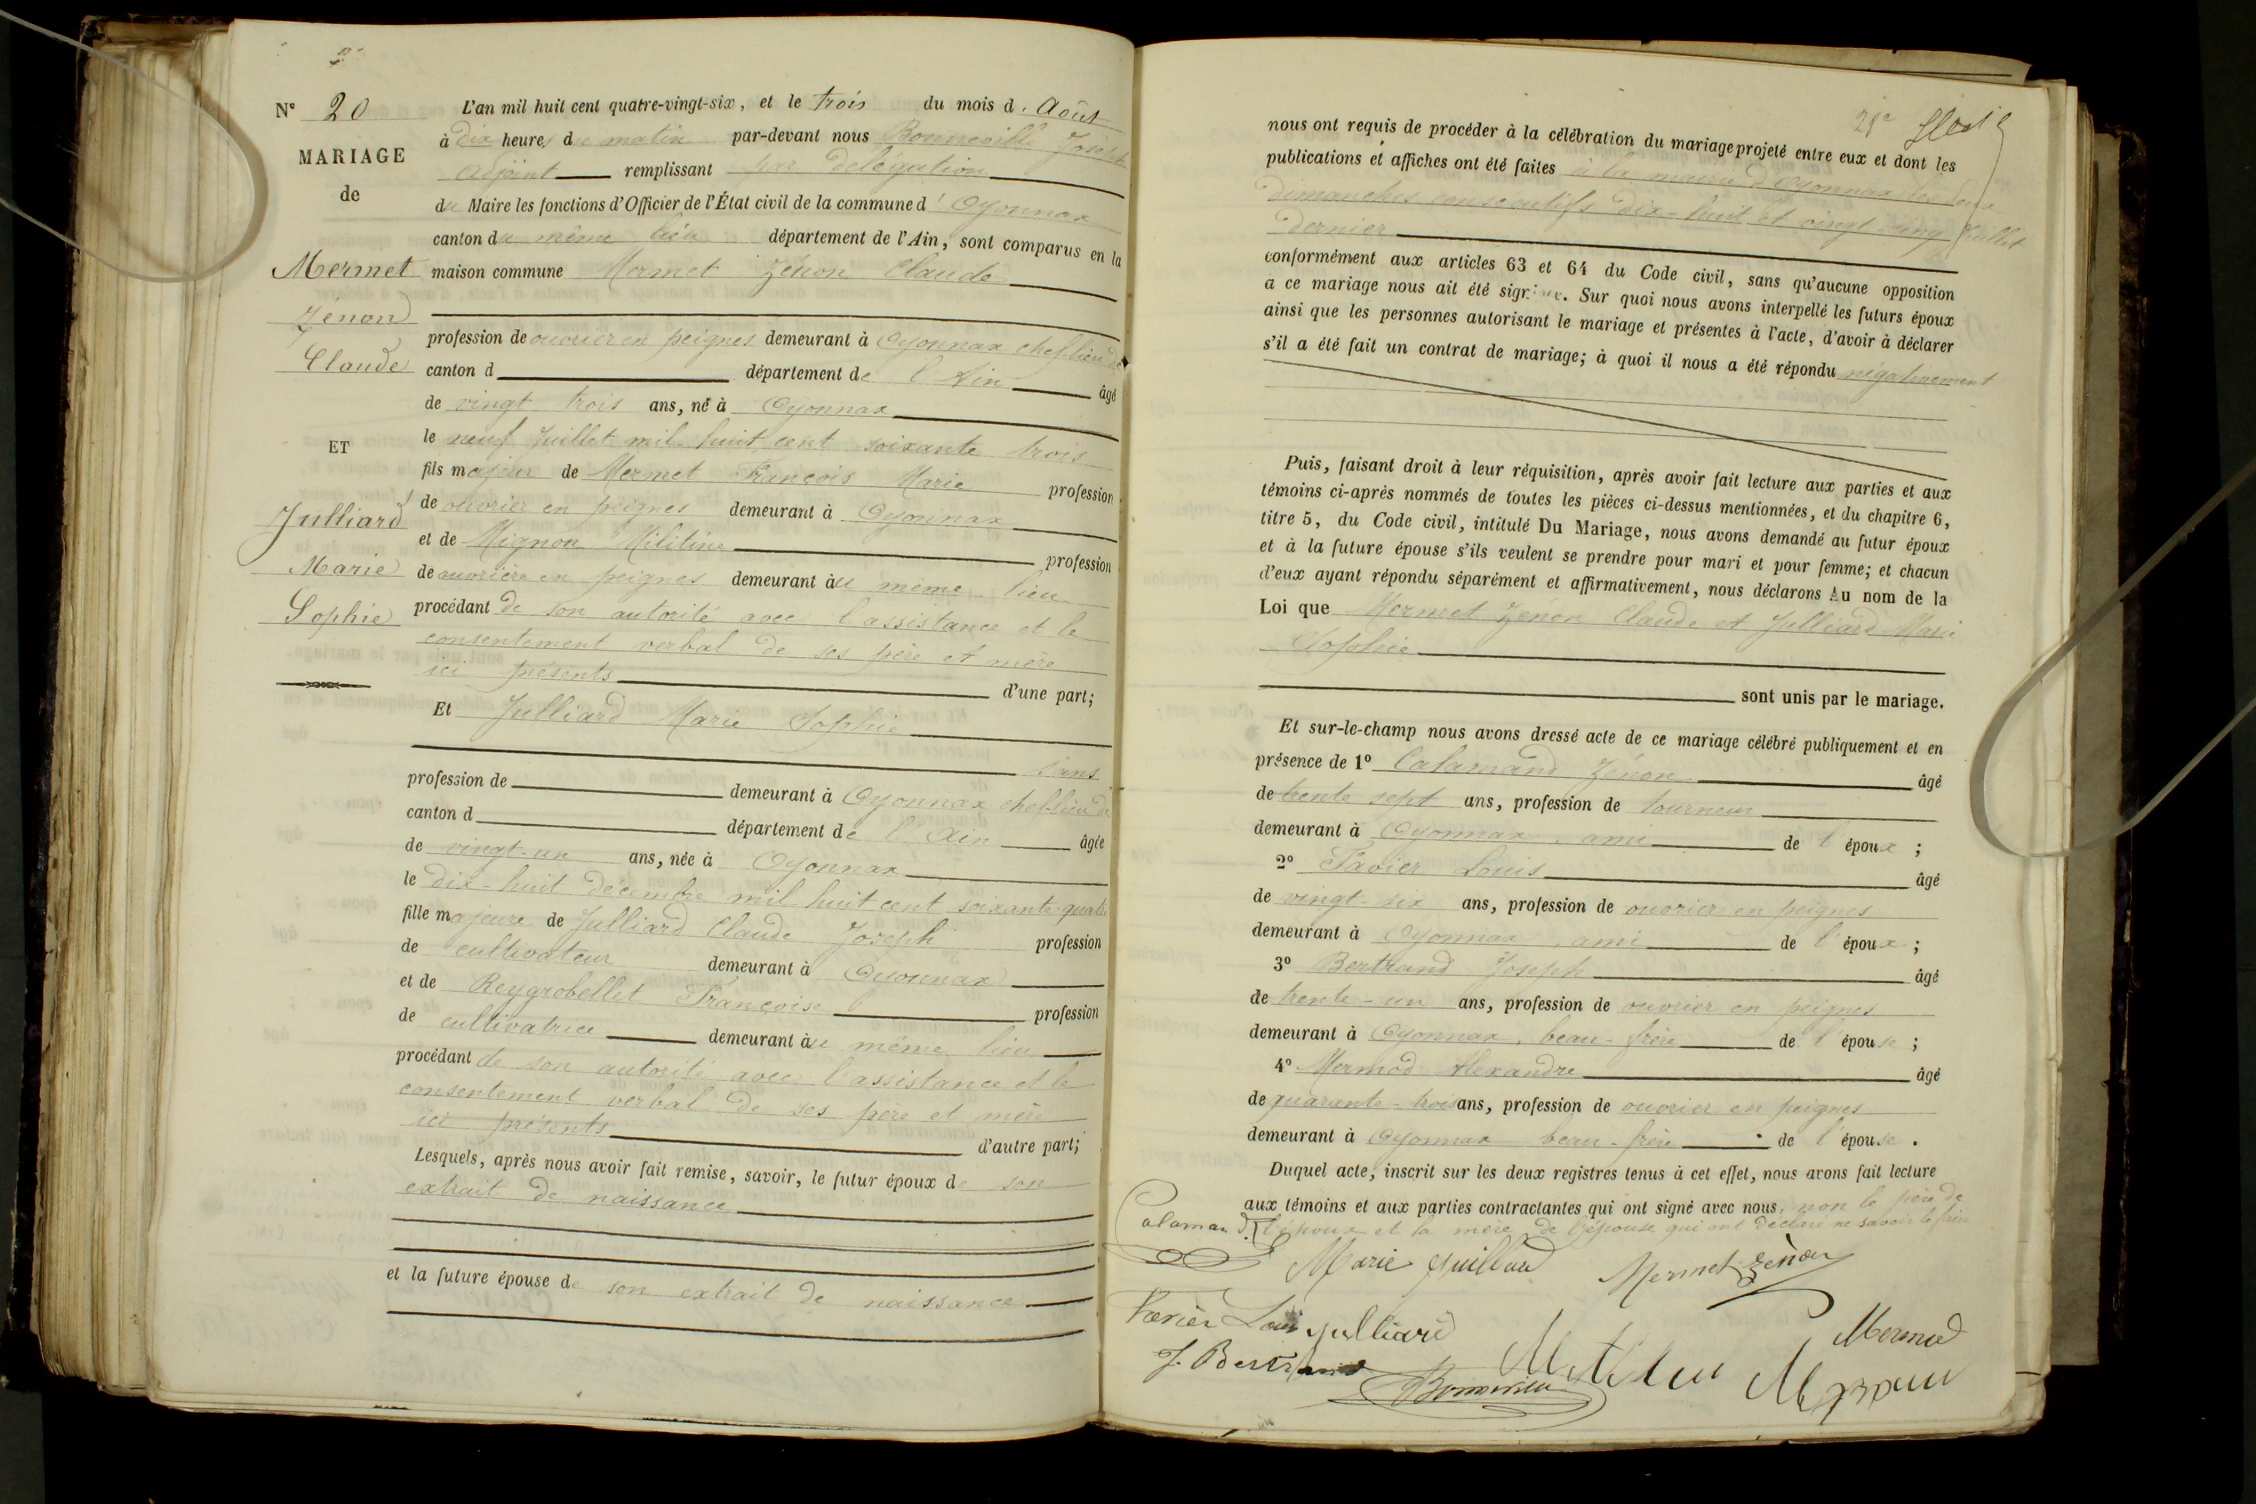 N° 20
MARIAGE
de
Mermet
Zenon
Claude
ET
Julliard
Marie
Sophie
L'an mil huit cent quatre-vingt-six, et le trois du mois d. Août
à dix heures du matin par-devant nous Bonneville Joseph
Adjoint remplissant par delegation
du Maire les fonctions d'Officier de l'État civil de la commune d'Oyonnax
canton du même lieu département de l'Ain, sont comparus en la
maison commune Mermet Zénon Claude
profession de ouvrier en peignes demeurant à Oyonnax chef lieu de
canton d département de l'Ain âgé
de vingt trois ans, né à Oyonnax
le neuf Juillet mil huit cent soixante trois
fils majeur de Mermet François Marie profession
de ouvrier en peignes demeurant à Oyonnax
et de Mignon Militine profession
de ouvrière en peignes demeurant au même lieu
procédant de son autorité avec l'assistance et le
consentement verbal de ses père et mère
ici présents d'une part;
Et Julliard Marie Sophie
sans
profession de demeurant à Oyonnax chef lieu de
canton d département de l'Ain âgée
de vingt-un ans, née à Oyonnax
le dix-huit décembre mil huit cent soixante quatre
fille majeure de Julliard Claude Joseph profession
de cultivateur demeurant à Oyonnax
et de Reygrobellet Françoise profession
de cultivatrice demeurant au même lieu
procédant de son autorité avec l'assistance et le
consentement verbal de ses père et mère
ici présents d'autre part;
Lesquels, après nous avoir fait remise, savoir, le futur époux de son
extrait de naissance
et la future épouse de son extrait de naissance
nous ont requis de procéder à la célébration du mariage projeté entre eux et dont les
publications et affiches ont été faites à la mairie d'Oyonnax les deux
dimanches consecutifs dix-huit et vingt cinq Juillet
dernier
conformément aux articles 63 et 64 du Code civil, sans qu'aucune opposition
a ce mariage nous ait été signifiée. Sur quoi nous avons interpellé les futurs époux
ainsi que les personnes autorisant le mariage et présentes à l'acte, d'avoir à déclarer
s'il a été fait un contrat de mariage; à quoi il nous a été répondu négativement
Puis, faisant droit à leur réquisition, après avoir fait lecture aux parties et aux
témoins ci-après nommés de toutes les pièces ci-dessus mentionnées, et du chapitre 6,
titre 5, du Code civil, intitulé Du Mariage, nous avons demandé au futur époux
et à la future épouse s'ils veulent se prendre pour mari et pour femme; et chacun
d'eux ayant répondu séparément et affirmativement, nous déclarons Au nom de la
Loi que Mermet Zenon Claude et Julliard Marie
Sophie
sont unis par le mariage.
Et sur-le-champ nous avons dressé acte de ce mariage célébré publiquement et en
présence de 1° Calamand Zénon âgé
de trente sept ans, profession de tourneur
demeurant à Oyonnax, ami de l'époux ;
2° Tavier Louis âgé
de vingt-six ans, profession de ouvrier en peignes
demeurant à Oyonnax, ami de l'époux ;
3° Bertrand Joseph âgé
de trente-un ans, profession de ouvrier en peignes
demeurant à Oyonnax, beau-frère de l'épouse ;
4° Mermod Alexandre âgé
de quarante-trois ans, profession de ouvrier en peignes
demeurant à Oyonnax beau-frère de l'épouse .
Duquel acte, inscrit sur les deux registres tenus à cet effet, nous avons fait lecture
aux témoins et aux parties contractantes qui ont signé avec nous, non le père de
l'époux et la mère de l'épouse qui ont déclaré ne savoir le faire
Calamand
Marie Juillard Mermet Zénon
Louis Julliard Mermod
J. Bertrand